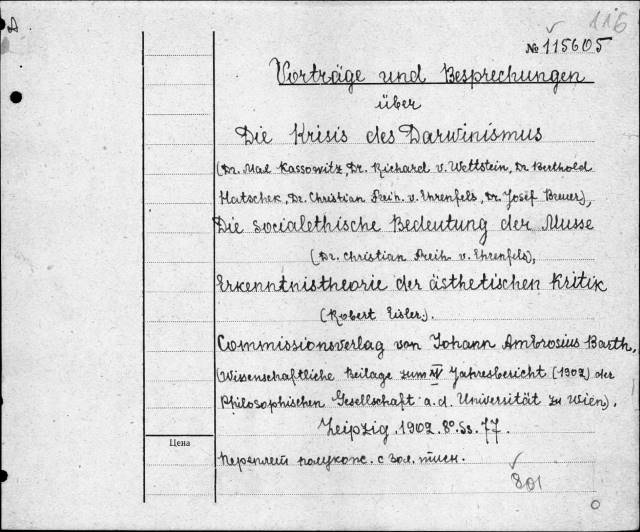 116
№ 115605
Vorträge und Besprechungen
über
Die Krisis des Darwinismus
(Dr. Max Kassowitz, Dr. Richard v. Wettstein, Dr Berthold
Hatschek, Dr. Christian Freih. v. Ehrenfels, Dr. Josef Breuer),
Die socialethische Bedeutung der Musse
(Dr. Christian Freih v. Ehrenfels),
Erkenntnistheorie der ästhetischen Kritik
(Robert Eisler).
Commissionsverlag von Johann Ambrosius Barth.
(Wissenschaftliche Beilage zum XV Jahresbericht (1902) der
Philosophischen Gesellschaft a. d. Universität zu Wien).
Leipzig. 1902. 8°. Ss. 77.
Цена
Переплет полукож. с зол. тисн.
801